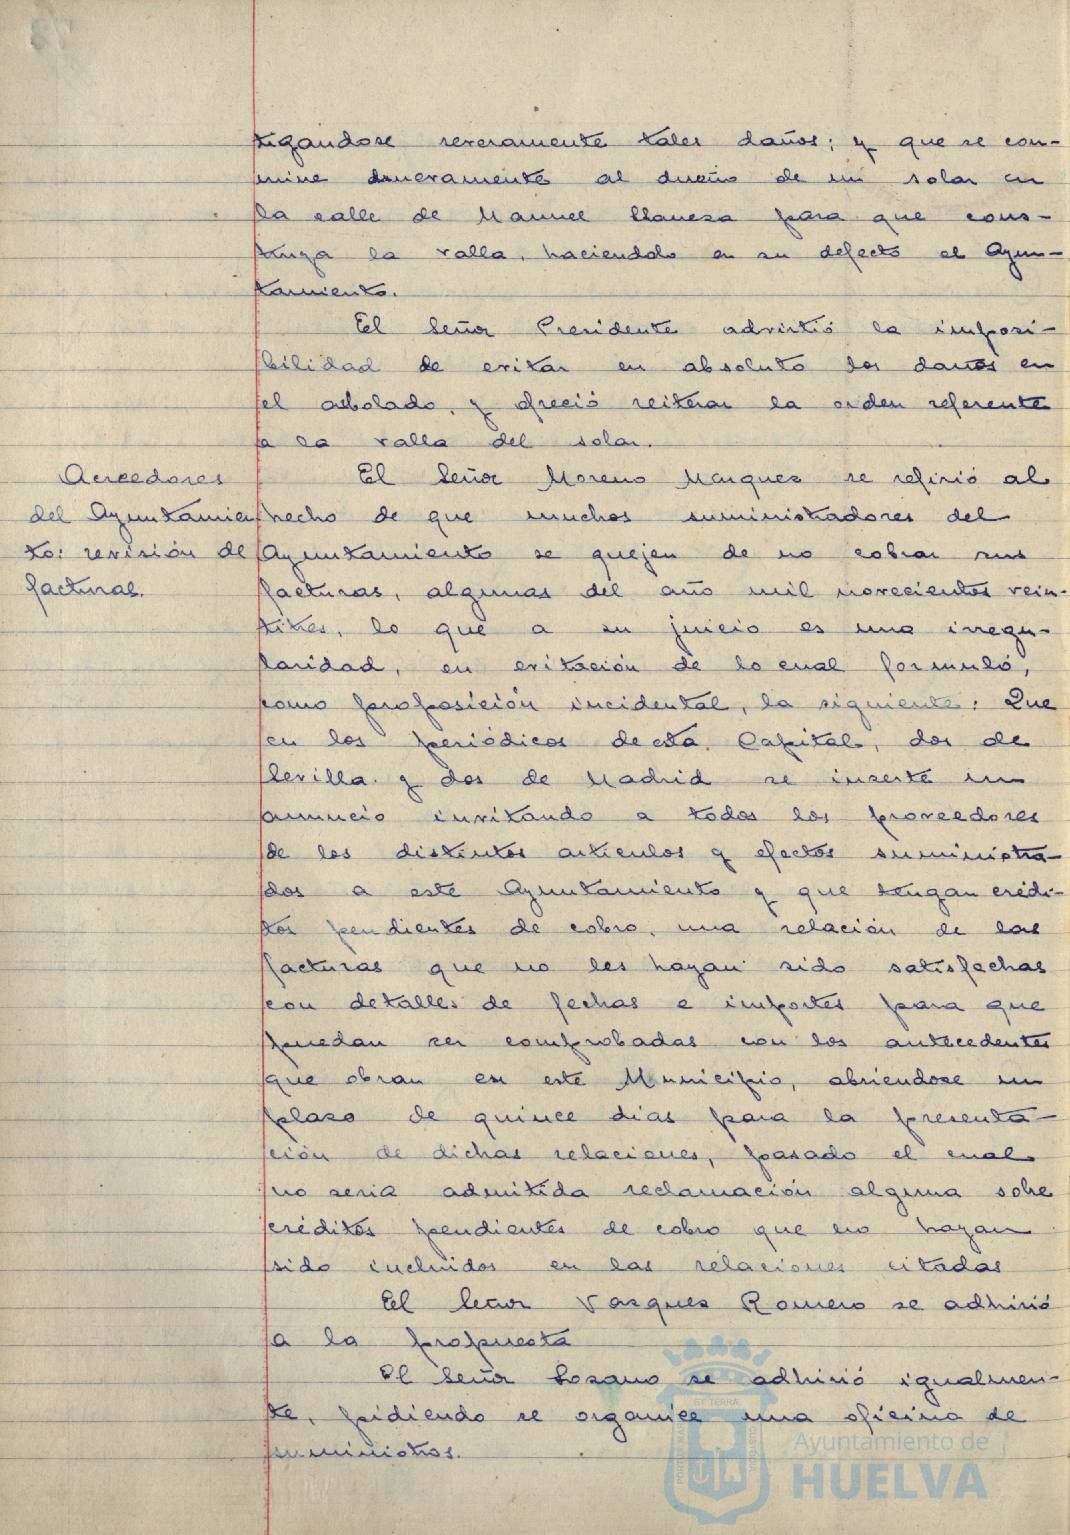 tigandose severamente tales daños; y que se con-
mine nuevamente al dueño de un solar en
la calle de Manuel Llaneza para que cons-
truya la valla, haciendolo en su defecto el Ayun-
tamiento.
El Señor Presidente advirtió la imposi-
bilidad de evitar en absoluto los daños en
el arbolado, y ofreció reiterar la orden referente
a la valla del solar.
Acreedores
del Ayuntamien
to: revisión de
facturas.
El Señor Moreno Marquez se refirió al
hecho de que muchos suministradores del
Ayuntamiento se quejen de no cobrar sus
facturas, algunas del año mil novecientos vein-
titres, lo que a su juicio es una irregu-
laridad, en evitación de lo cual formuló,
como proposición incidental, la siguiente: Que
en los periódicos de esta Capital, dos de
Sevilla y dos de Madrid se inserte un
anuncio invitando a todos los proveedores
de los distintos articulos y efectos suministra-
dos a este Ayuntamiento y que tengan crédi-
tos pendientes de cobro, una relación de las
facturas que no les hayan sido satisfechas
con detalles de fechas e importes para que
puedan ser comprobadas con los antecedentes
que obran en este Municipio, abriendose un
plazo de quince dias para la presenta-
ción de dichas relaciones, pasado el cual
no seria admitida reclamación alguna sobre
créditos pendientes de cobro que no hayan
sido incluidos en las relaciones citadas
El Señor Vazquez Romero se adhirió
a la propuesta
El Señor Lozano se adhirió igualmen-
te, pidiendo se organice una oficina de
suministros.
Ayuntamiento de
HUELVA